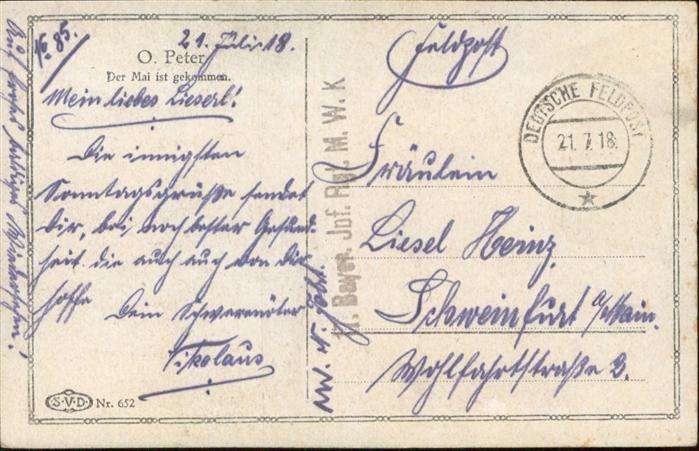 № 85.
21. Juli 18.
O. Peter
Der Mai ist gekommen.
Mein liebes Lieserl!
Die innigsten
Sonntagsgrüße sendet
Dir, bei noch bester Gesund-
heit die auch auch von Dir
hoffe
Dein Schwerenöter
Nikolaus
S.V.D. Nr. 652
Auf frohes baldiges Wiedersehn!
Bayer. Inf. Rgt. M. W. K
Feldpost
DEUTSCHE FELDPOST
21.7.18.
Fräulein
Liesel Heinz
Schweinfurt a/Main.
Wohlfahrtstraße 2.